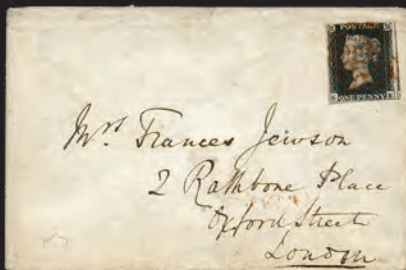 POSTAGE
ONE PENNY
Mrs. Frances Jewson
2 Rathbone Place
Oxford Street
London